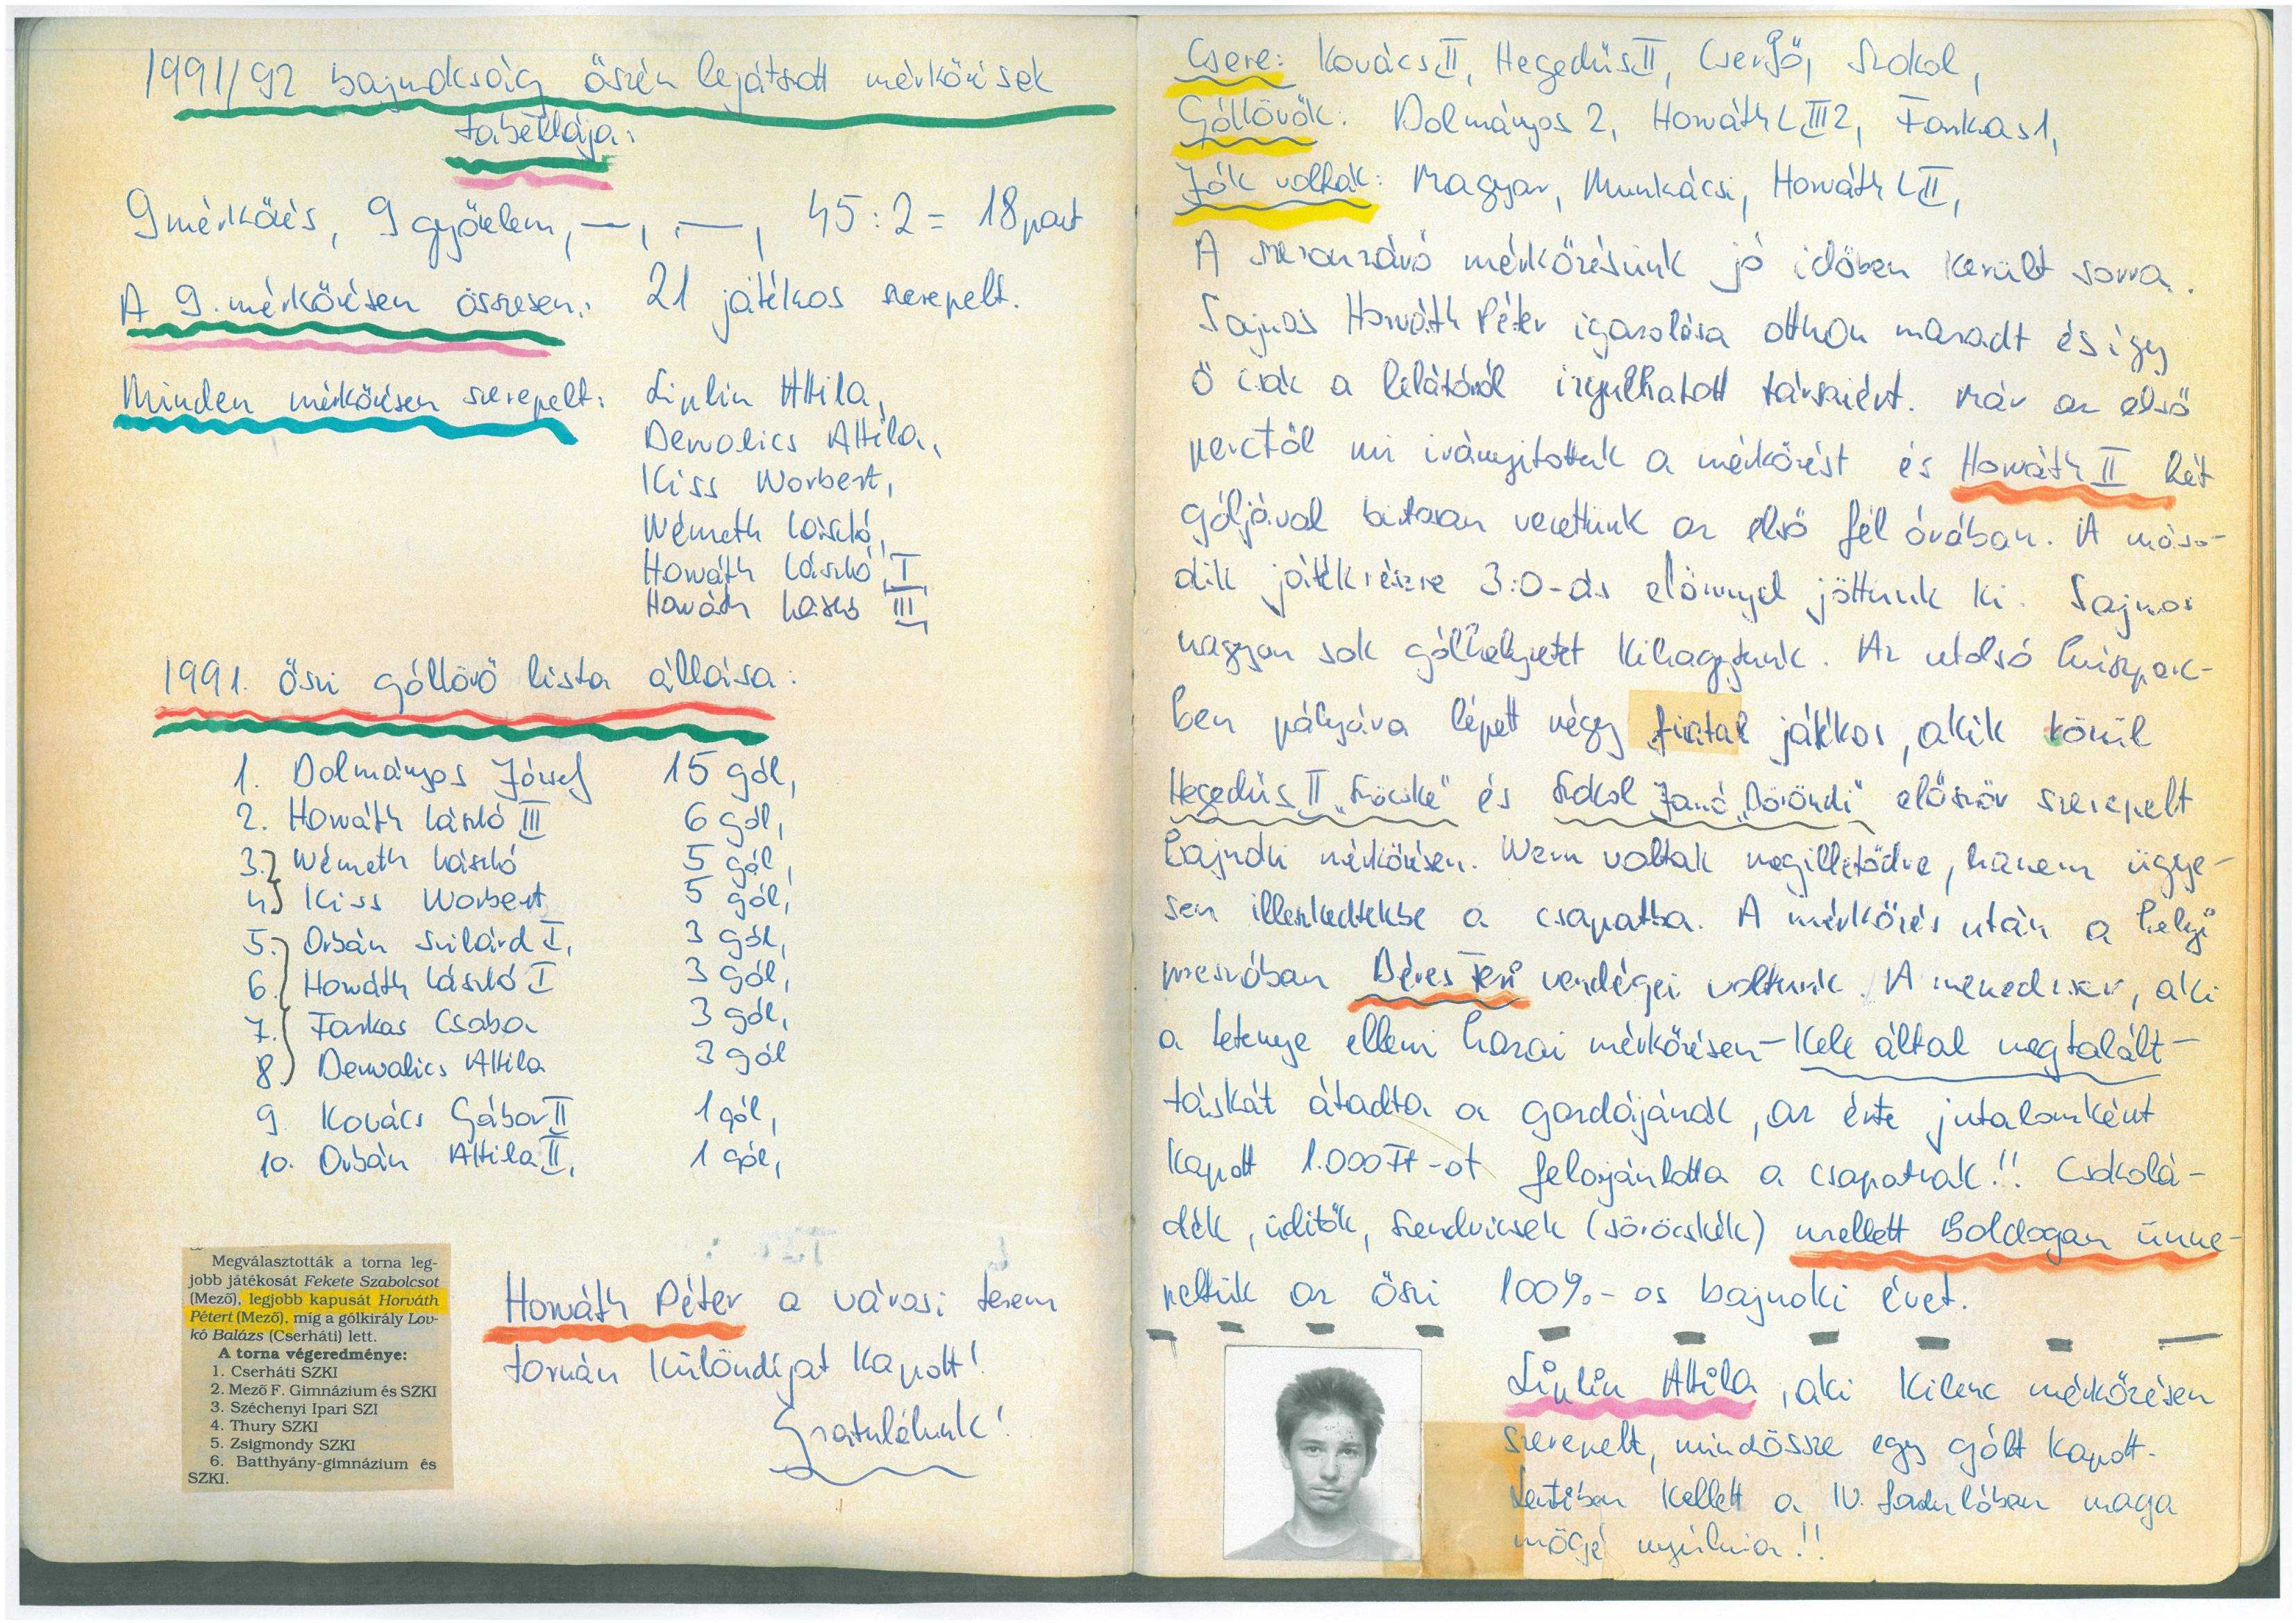 1991/92 bajnokság őszén lejátszott mérkőzések
tabellája:
9 mérkőzés, 9 győzelem, —, —, 45:2 = 18 pont
A 9. mérkőzésen összesen: 21 játékos szerepelt.
Minden mérkőzésen szerepelt: Liplin Attila,
Dervalics Attila,
Kiss Norbert,
Németh László,
Horváth László I,
Horváth László III
1991. őszi góllövő lista állása:
1. Dolmányos József 15 gól,
2. Horváth László III 6 gól,
3. Németh László 5 gól,
4. Kiss Norbert 5 gól,
5. Orbán Szilárd I, 3 gól,
6. Horváth László I 3 gól,
7. Farkas Csaba 3 gól,
8. Dervalics Attila 3 gól
9. Kovács Gábor II 1 gól,
10. Orbán Attila II, 1 gól,
Megválasztották a torna leg-
jobb játékosát Fekete Szabolcsot
(Mező), legjobb kapusát Horváth
Pétert (Mező), míg a gólkirály Lov-
kó Balázs (Cserháti) lett.
A torna végeredménye:
1. Cserháti SZKI
2. Mező F. Gimnázium és SZKI
3. Széchenyi Ipari SZI
4. Thury SZKI
5. Zsigmondy SZKI
6. Batthyány-gimnázium és
SZKI.
Horváth Péter a városi terem
tornán különdíjat kapott!
Gratulálunk!
Csere: Kovács II, Hegedüs II, Cserfő, Szokol,
Góllövők: Dolmányos 2, Horváth L III 2, Farkas 1,
Jók voltak: Magyar, Munkácsi, Horváth L II,
A szezonzáró mérkőzésünk jó időben került sorra.
Sajnos Horváth Péter igazolása otthon maradt és így
ő csak a lelátóról izgulhatott társaiért. Már az első
perctől mi irányítottuk a mérkőzést és Horváth II két
góljával biztosan vezettünk az első fél órában. A máso-
dik játékrészre 3:0-ás előnnyel jöttünk ki. Sajnos
nagyon sok gólhelyzetet kihagytunk. Az utolsó húszperc-
ben pályára lépett négy fiatal játékos, akik közül
Hegedüs II „Szöcske" és Szokol Janó „Döröndi" először szerepelt
bajnoki mérkőzésen. Nem voltak megilletődve, hanem ügye-
sen illeszkedtekbe a csapatba. A mérkőzés után a helyi
preszóban Béres Feri vendégei voltunk. A menedzser, aki
a letenye elleni hazai mérkőzésen – Kele által megtalált –
táskát átadta a gazdájának, az érte jutalomként
kapott 1.000 Ft-ot felajánlotta a csapatnak!! Csokolá-
dék, üditők, szendvicsek (söröcskék) mellett boldogan ünne-
peltük az őszi 100%-os bajnoki évet.
Liplin Attila, aki kilenc mérkőzésen
szerepelt, mindössze egy gólt kapott.
Lentiben kellett a IV. fordulóban maga
mögé nyúlnia!!